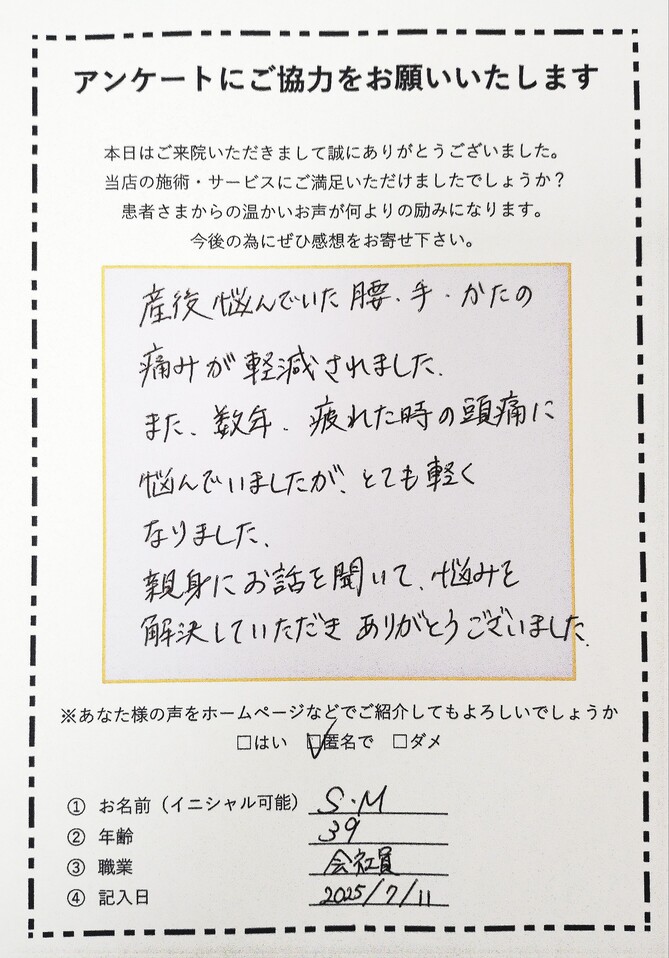 アンケートにご協力をお願いいたします
本日はご来院いただきまして誠にありがとうございました。
当店の施術・サービスにご満足いただけましたでしょうか？
患者さまからの温かいお声が何よりの励みになります。
今後の為にぜひ感想をお寄せ下さい。
産後悩んでいた腰・手・かたの
痛みが軽減されました。
また、数年、疲れた時の頭痛に
悩んでいましたが、とても軽く
なりました。
親身にお話を聞いて、悩みを
解決していただきありがとうございました。
※あなた様の声をホームページなどでご紹介してもよろしいでしょうか
□はい ☑匿名で □ダメ
① お名前（イニシャル可能） S・M
② 年齢 39
③ 職業 会社員
④ 記入日 2025/7/11